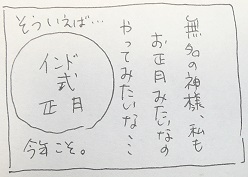 無名の神様、私も
お正月みたいなの
やってみたいな…
そういえば…
インド
式
正月
今年こそ。